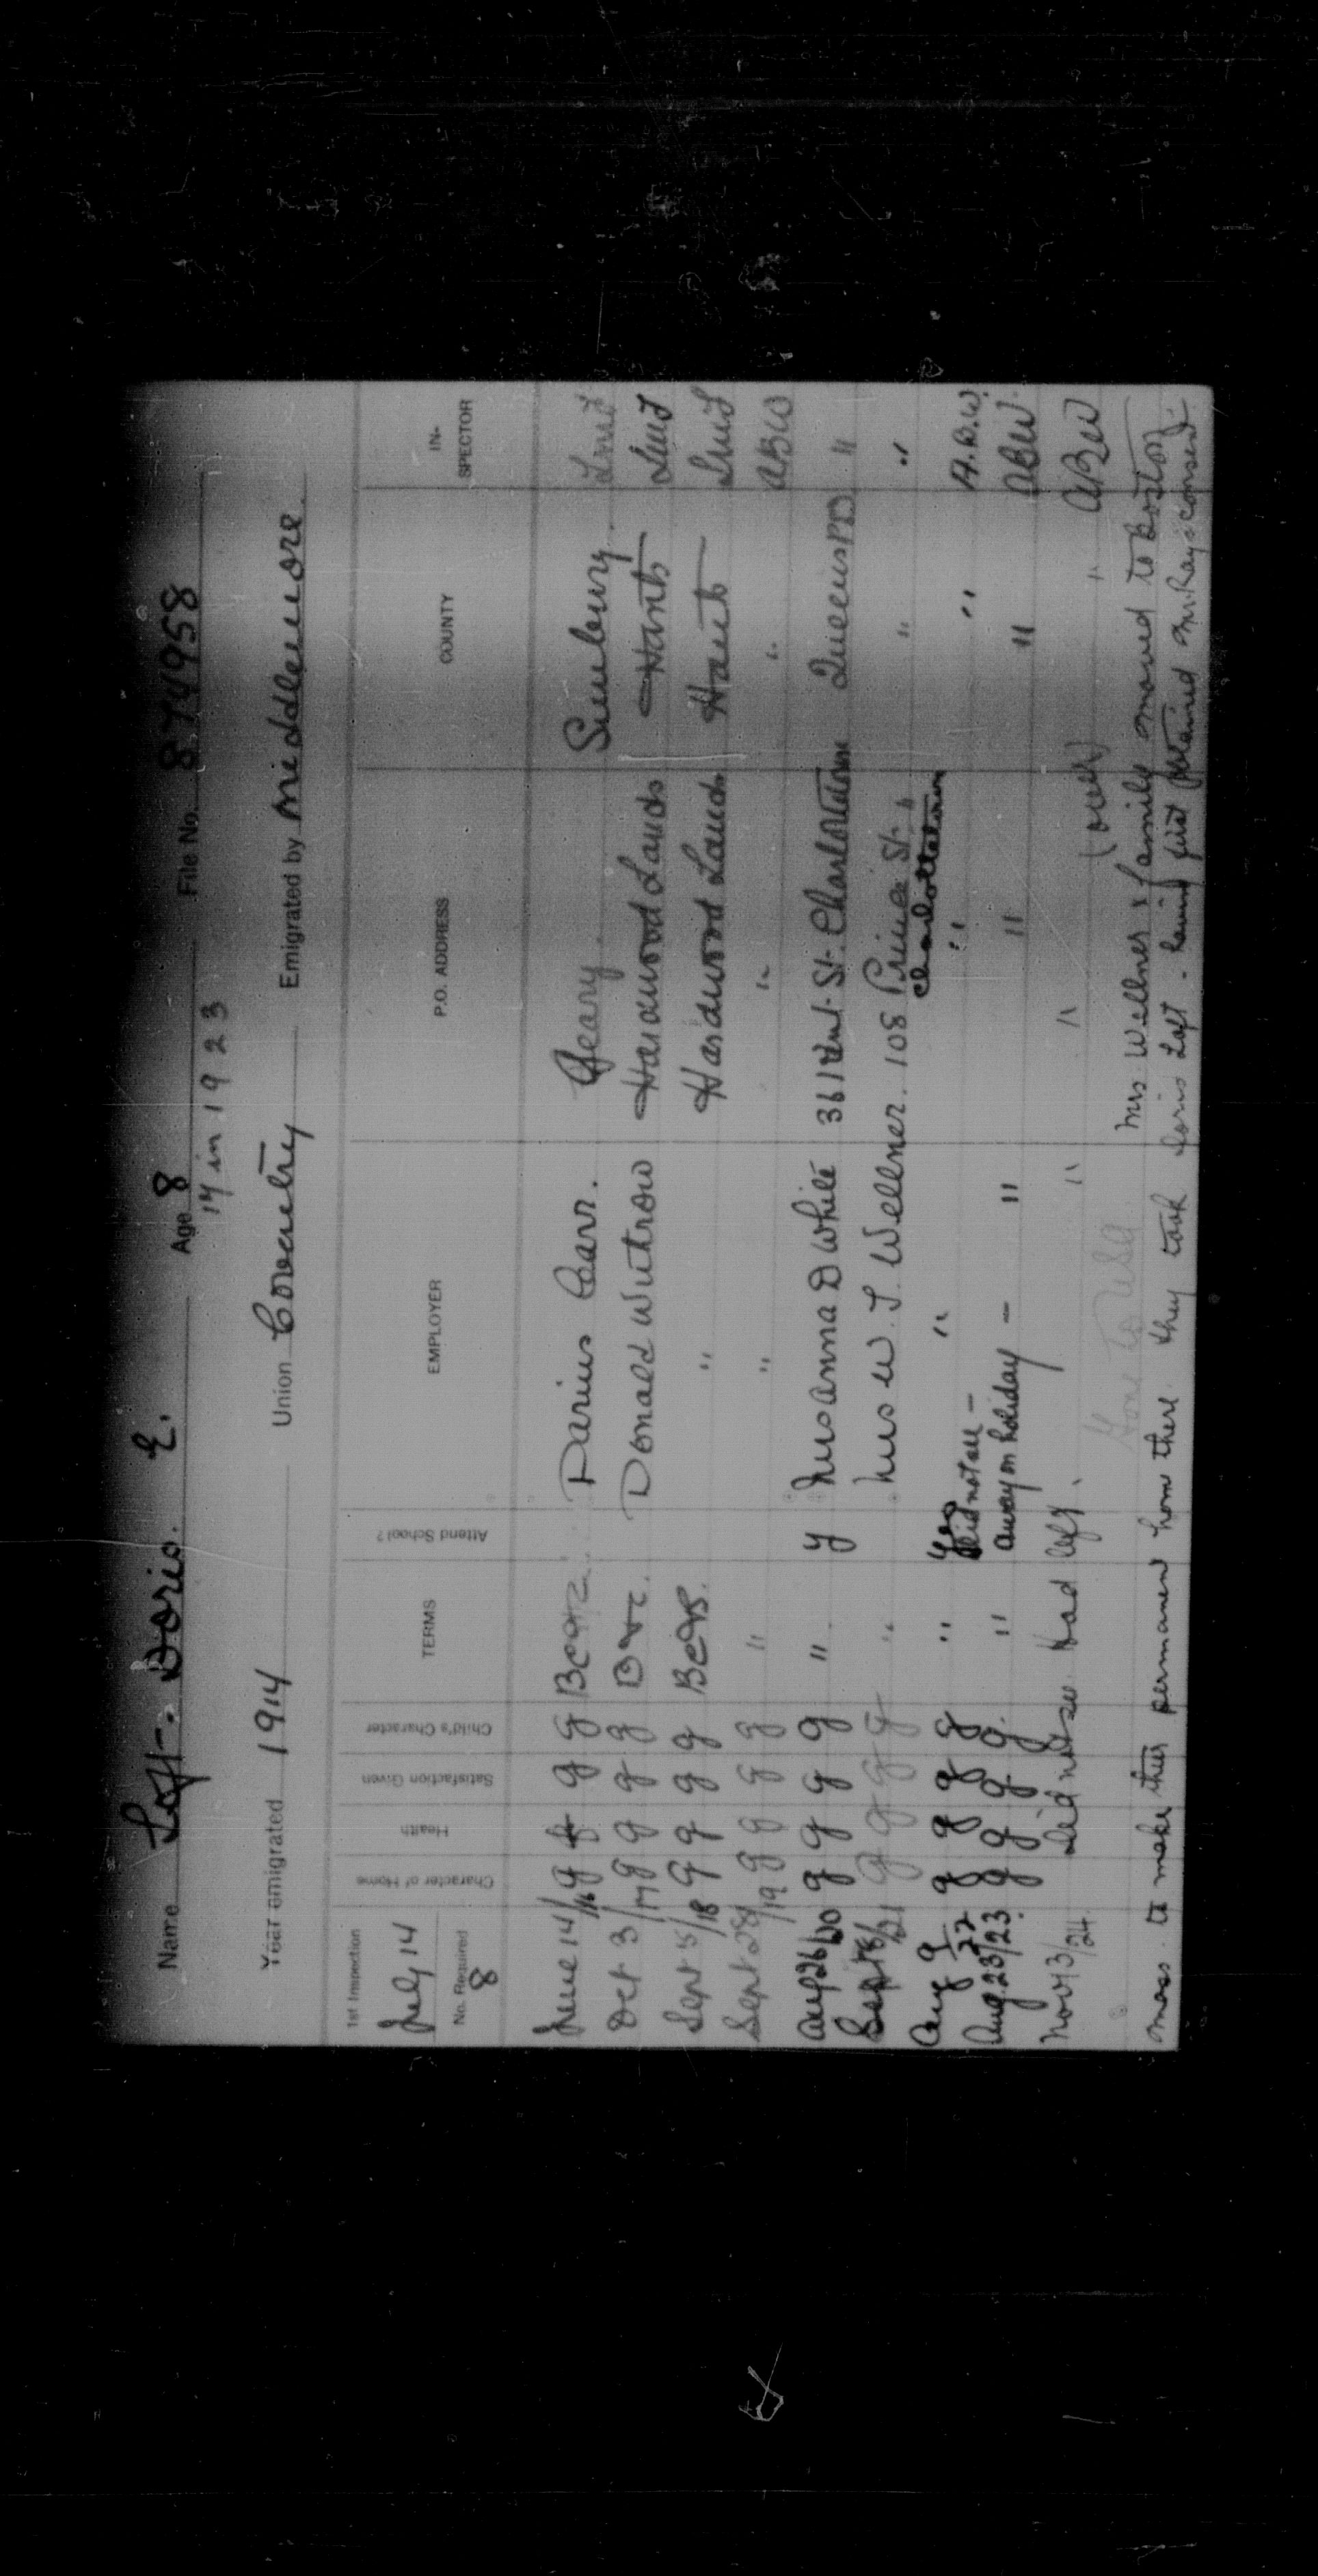 Name Loft - Doris. E. Age 8 File No. 874958
14 in 1923
Year emigrated 1914 Union Coventry Emigrated by Middlemore.
1st Inspection
July 14
No. Required
8
Character of Home Health Satisfaction Given Child's Character TERMS Attend School? EMPLOYER P.O. ADDRESS COUNTY IN-SPECTOR
June 14/16 g g g Darius Carr. Geary Sunbury.
Oct 3/17 g g g g Donald Wutrow Hardwood Lands Hants
Sept 5/18 g g g g " Hardwood Lands Hants
Sept 28/19 g g g g " " " " ABW
Aug 26/20 g g g g " y Mrs Anna D White 361 St. Charlottetown Queens "
Sept 18/21 g g g g " Mrs W. J. Wellner. 108 Prince St. " "
Charlottetown
Aug 9/22 g g g g " Yes " " " A.B.W.
did not see -
Aug. 23/23. g g g g. " away on holiday - " " " ABW.
Nov 13/24. Did not see. Had left. " " " ABW
(over)
Gone to USA
Mrs. Wellner & family moved to Boston
Mass. to make their permanent home there. they took Doris Loft - having first obtained Mr. Ray's consent.